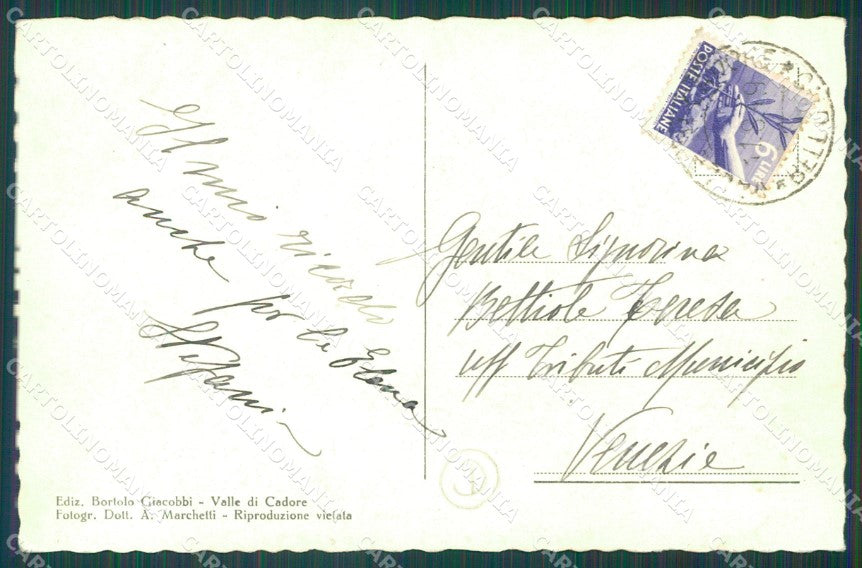 Il mio ricordo
anche per la Elena
Stefani
Gentile Signorina
Bettiole Teresa
Uff Tributi Municipio
Venezia
POSTE ITALIANE
6 LIRE
BELLUNO
Ediz. Bortolo Giacobbi - Valle di Cadore
Fotogr. Dott. A. Marchetti - Riproduzione vietata
CARTOLINOMANIA